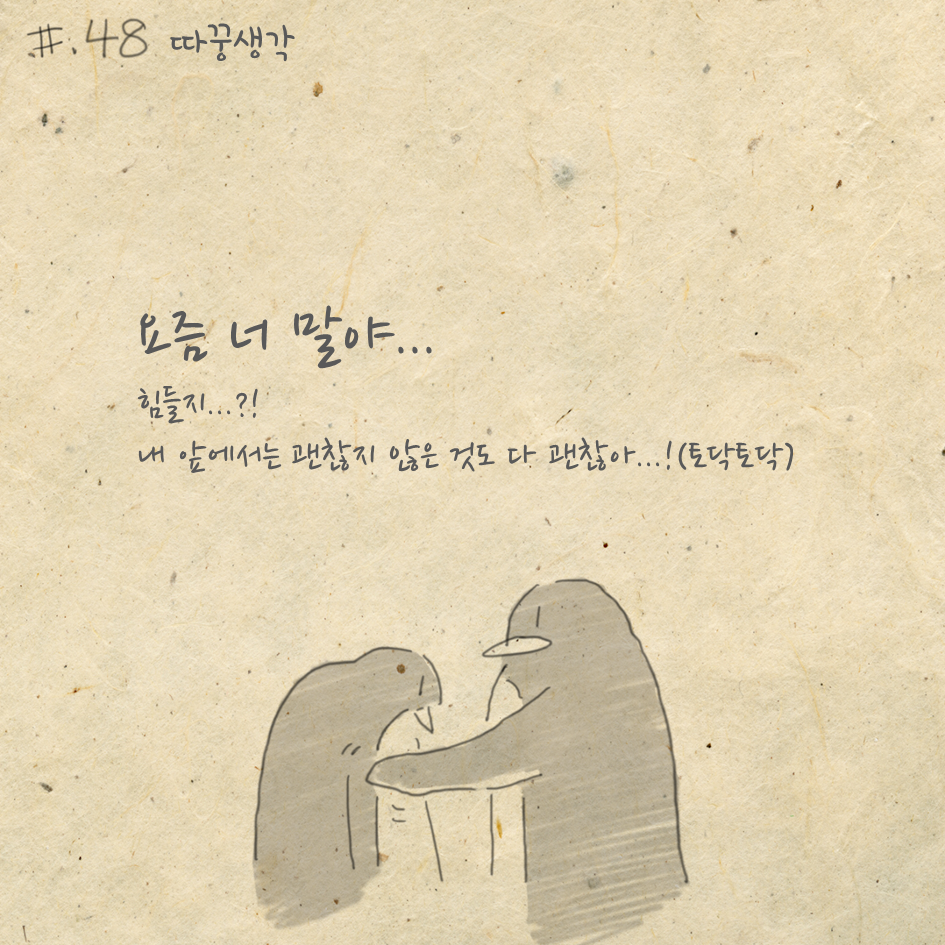 #.48 따꿍생각
요즘 너 말야...
힘들지...?!
내 앞에서는 괜찮지 않은 것도 다 괜찮아...!(토닥토닥)